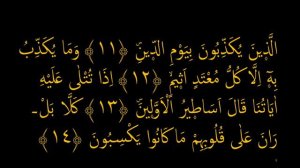 الَّذِينَ يُكَذِّبُونَ بِيَوْمِ الدِّينِ ﴿١١﴾ وَمَا يُكَذِّبُ
بِهِ إِلَّا كُلُّ مُعْتَدٍ أَثِيمٍ ﴿١٢﴾ إِذَا تُتْلَى عَلَيْهِ
اٰيَاتُنَا قَالَ اَسَاطِيرُ الْاَوَّلِينَ ﴿١٣﴾ كَلَّا بَلْ-
رَانَ عَلَى قُلُوبِهِمْ مَا كَانُوا يَكْسِبُونَ ﴿١٤﴾